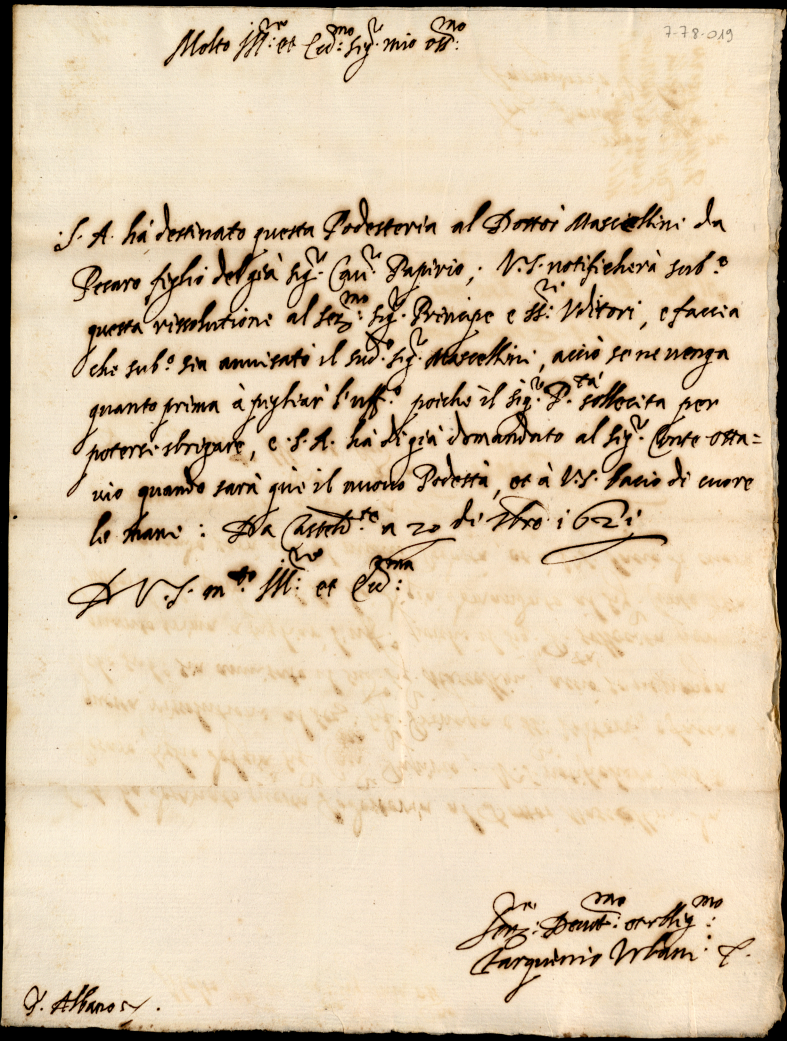 7-78-019
Molto Ill:re et Ecc:mo sig.r mio oss:mo
S. A. hà destinato questa Podesteria al Dottor Mascellini da
Pesaro figlio del già sig.r Cau.r Papirio; V.S. notificherà sub.o
questa rissolutione al ser.mo sig.r Principe e SS:ri Uditori, e faccia
che sub.o sia auuisato il sud.o sig.r Mascellini, acciò se ne uenga
quanto prima à pigliar l'uff.o poiche il sig.r P.tà sollecita per
potersi sbrigare, e S. A. hà di già domandato al sig.r Conte Otta=
uio quando sarà què il nuouo Podestà, et à V.S. bacio di cuore
le mane: Da Casteld.te a 20 di 7bro 1621
D V.S. m.to Ill:re et Ecc:ma
Ser:re Deuot:mo et oblig:mo
Tarquinio Urbani
S. Albano